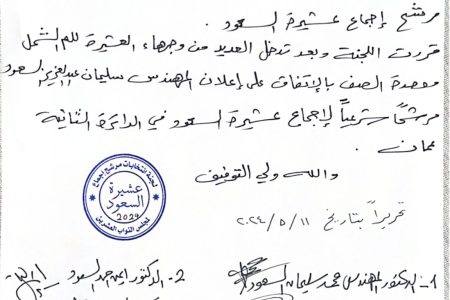 مرشح إجماع عشيرة السعود .
قررت اللجنة وبعد تدخل العديد من وجهاء العشيرة للم الشمل
ووحدة الصف بالإتفاق على إعلان المهندس سليمان عبدالعزيز السعود
مرشحاً شرعياً لإجماع عشيرة السعود في الدائرة الثانية
عمان .
والله ولي التوفيق
لجنة انتخابات مرشح اجماع
عشيرة
السعود
2024
لمجلس النواب العشرين
تحريراً بتاريخ ٢٠٢٤/٥/١١
1- الدكتور المهندس محمد سليمان السعود
2- الدكتور ايمن احمد السعود